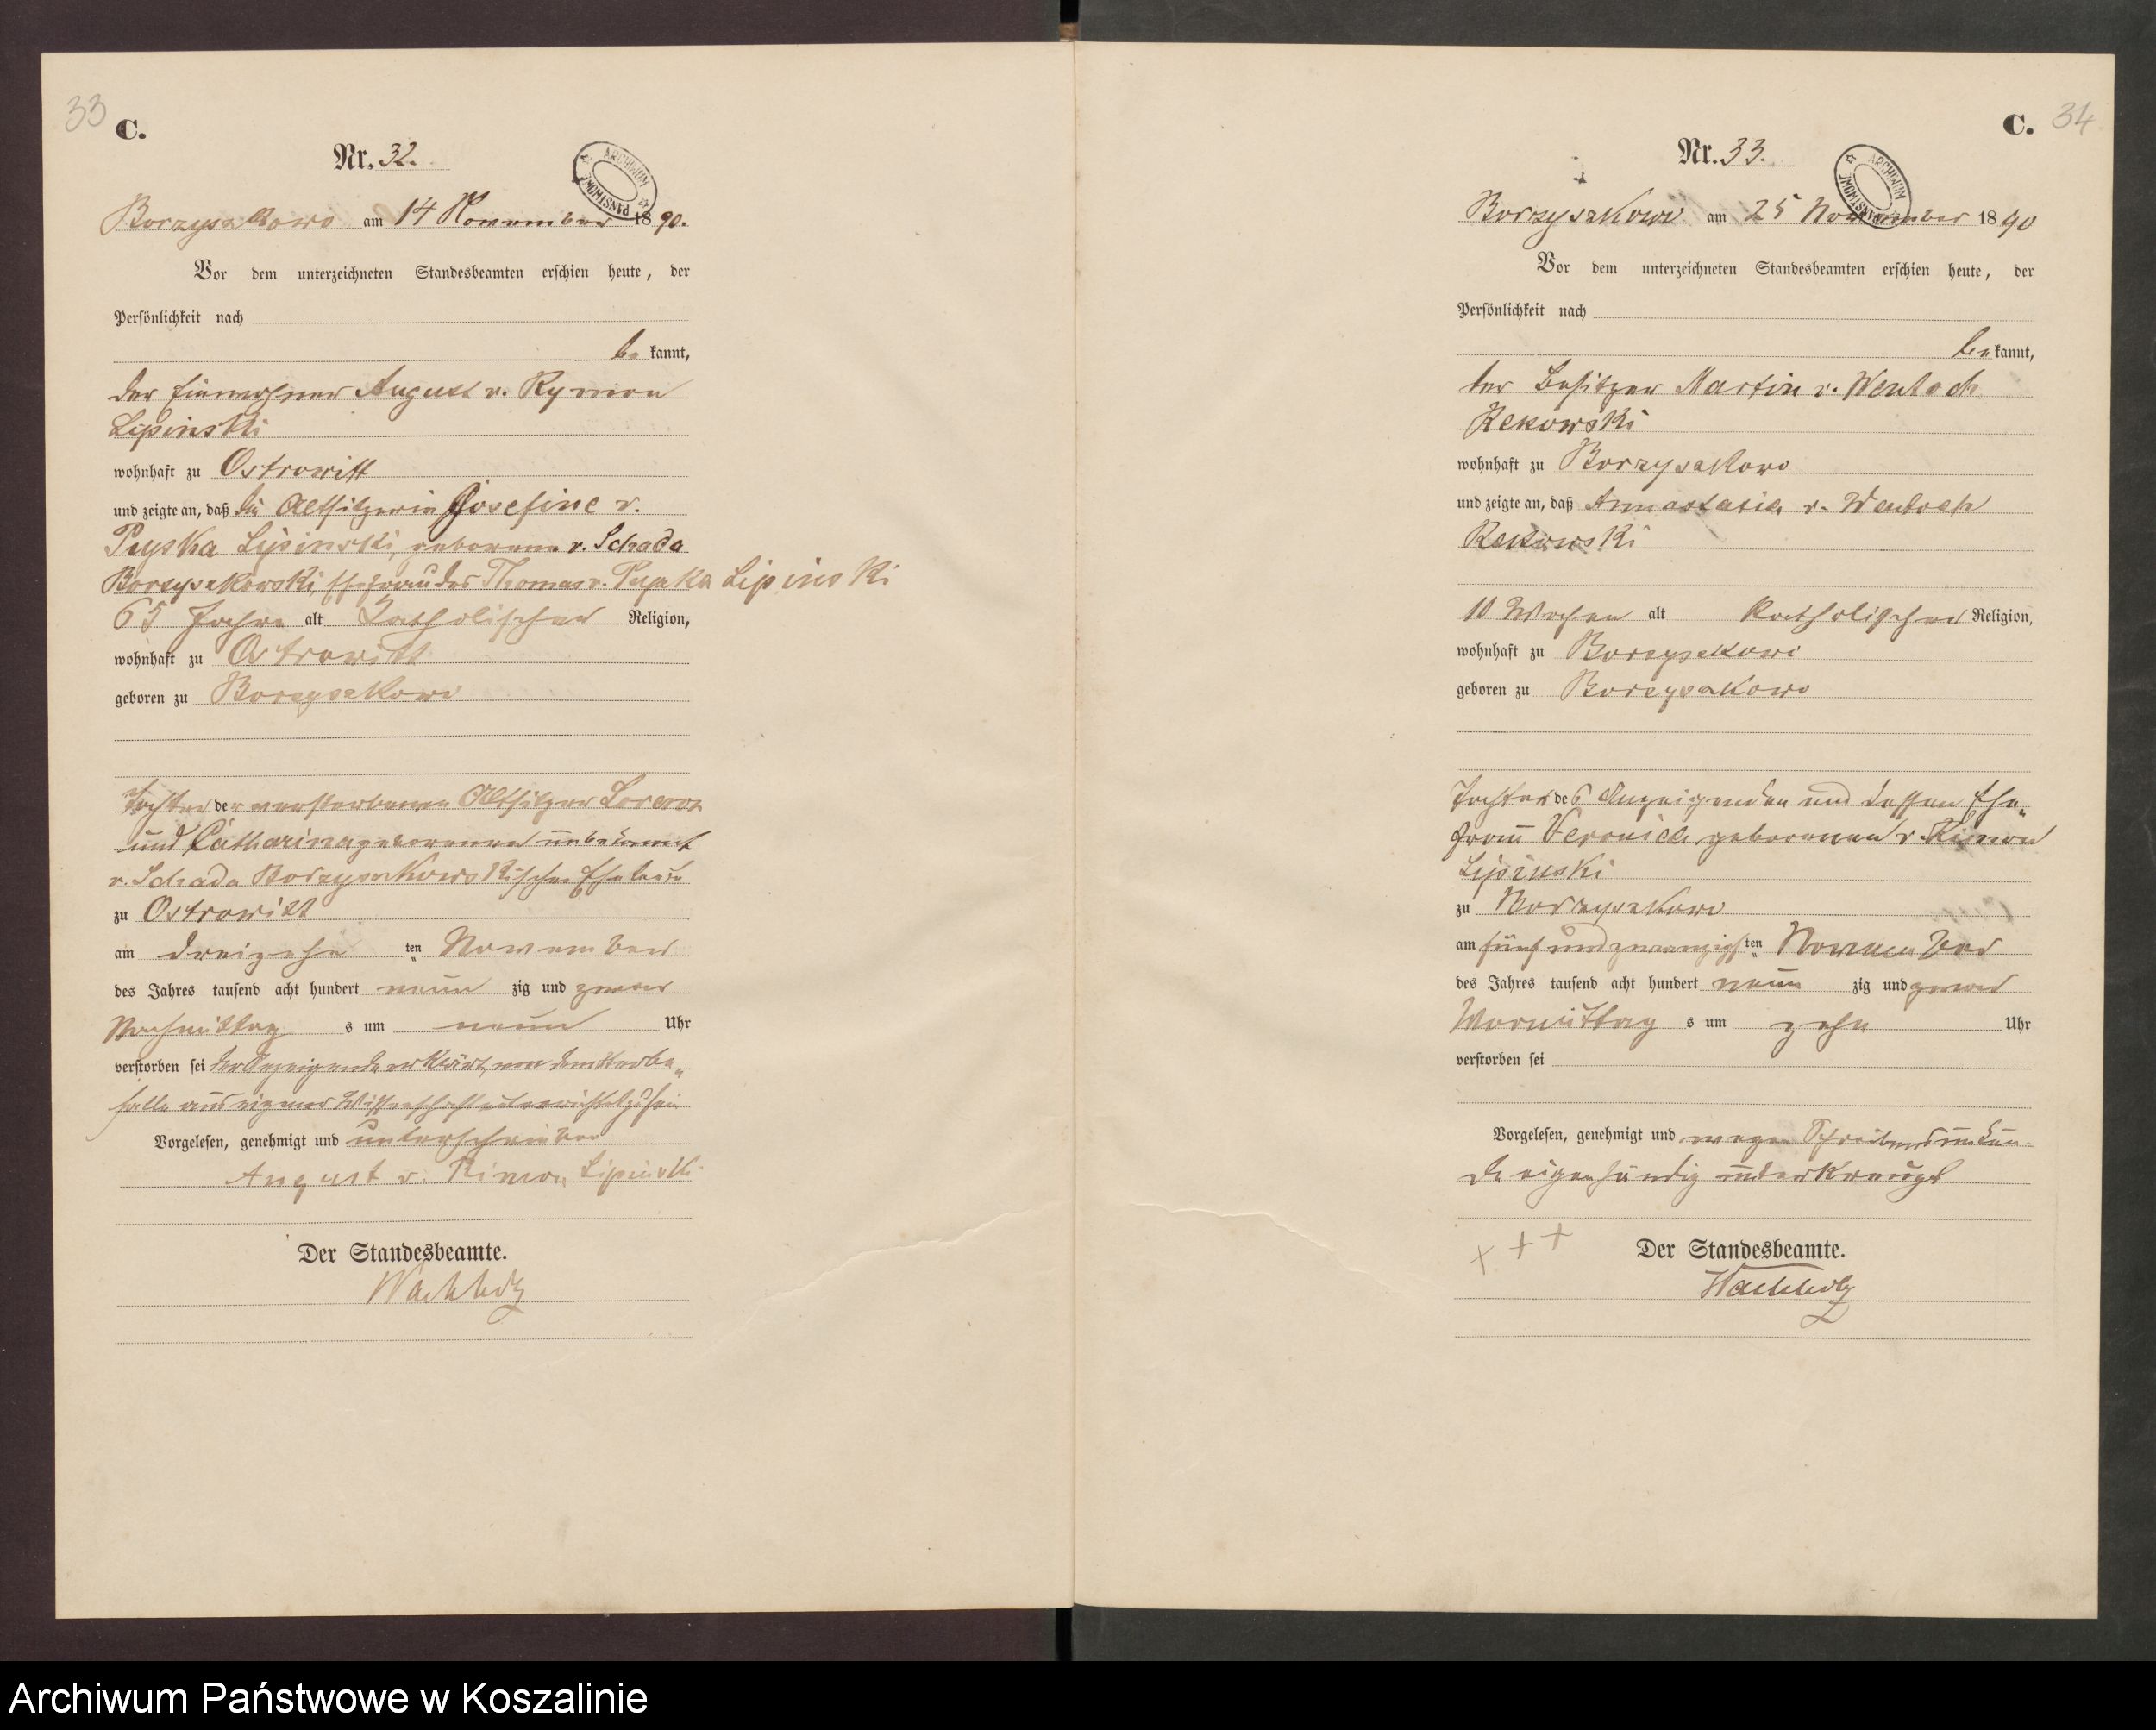 33
C.
Nr. 32.
ARCHIWUM PAŃSTWOWE
Borzyszkowo am 14 November 1890.
Vor dem unterzeichneten Standesbeamten erschien heute, der
Persönlichkeit nach
be kannt,
der Einwohner August v. Rymon
Lipinski
wohnhaft zu Ostrowitt
und zeigte an, daß die Altsitzerin Josefine v.
Pupka Lipinski, geborene v. Schada
Borzyszkowski, Ehefrau des Thomas v. Pupka Lipinski
65 Jahre alt katholischer Religion,
wohnhaft zu Ostrowitt
geboren zu Borzyszkowo
Tochter der verstorbenen Altsitzer Lorenz
und Catharina geborenen unbekannt
v. Schada Borzyszkowskischen Eheleute
zu Ostrowitt
am dreizehn ten November
des Jahres tausend acht hundert neun zig und zwar
Nachmittag s um neun Uhr
verstorben sei der Anzeigende erklärt, von dem Sterbe„
falle aus eigener Wissenschaft unterrichtet zu sein
Vorgelesen, genehmigt und unterschrieben
August v. Rimon Lipinski
Der Standesbeamte.
Wachholz
C. 34
Nr. 33.
ARCHIWUM PAŃSTWOWE
Borzyszkowo am 25 November 1890
Vor dem unterzeichneten Standesbeamten erschien heute, der
Persönlichkeit nach
be kannt,
der Besitzer Martin v. Wentoch
Rekowski
wohnhaft zu Borzyszkowo
und zeigte an, daß Annastasia v. Wentoch
Rekowski
10 Wochen alt katholischer Religion,
wohnhaft zu Borzyszkowo
geboren zu Borzyszkowo
Tochter des Anzeigenden und dessen Ehe„
frau Veronica geborenen v. Rymon
Lipinski
zu Borzyszkowo
am fünf und zwanzigsten November
des Jahres tausend acht hundert neun zig und zwar
Vormittag s um zehn Uhr
verstorben sei
Vorgelesen, genehmigt und wegen Schreibensunkun-
de eigenhändig unterkreuzt
+ + +
Der Standesbeamte.
Wachholz
Archiwum Państwowe w Koszalinie